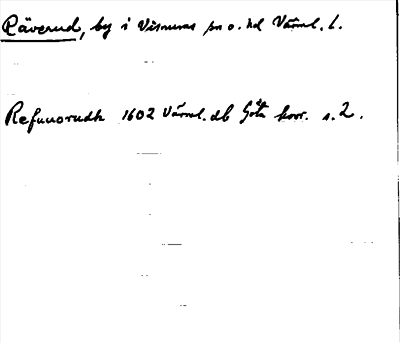 Räverud, by i Visnums sn o. hd Värml. l.
Refuuorudh 1602 Värml. db Göta hovr. s. 2.